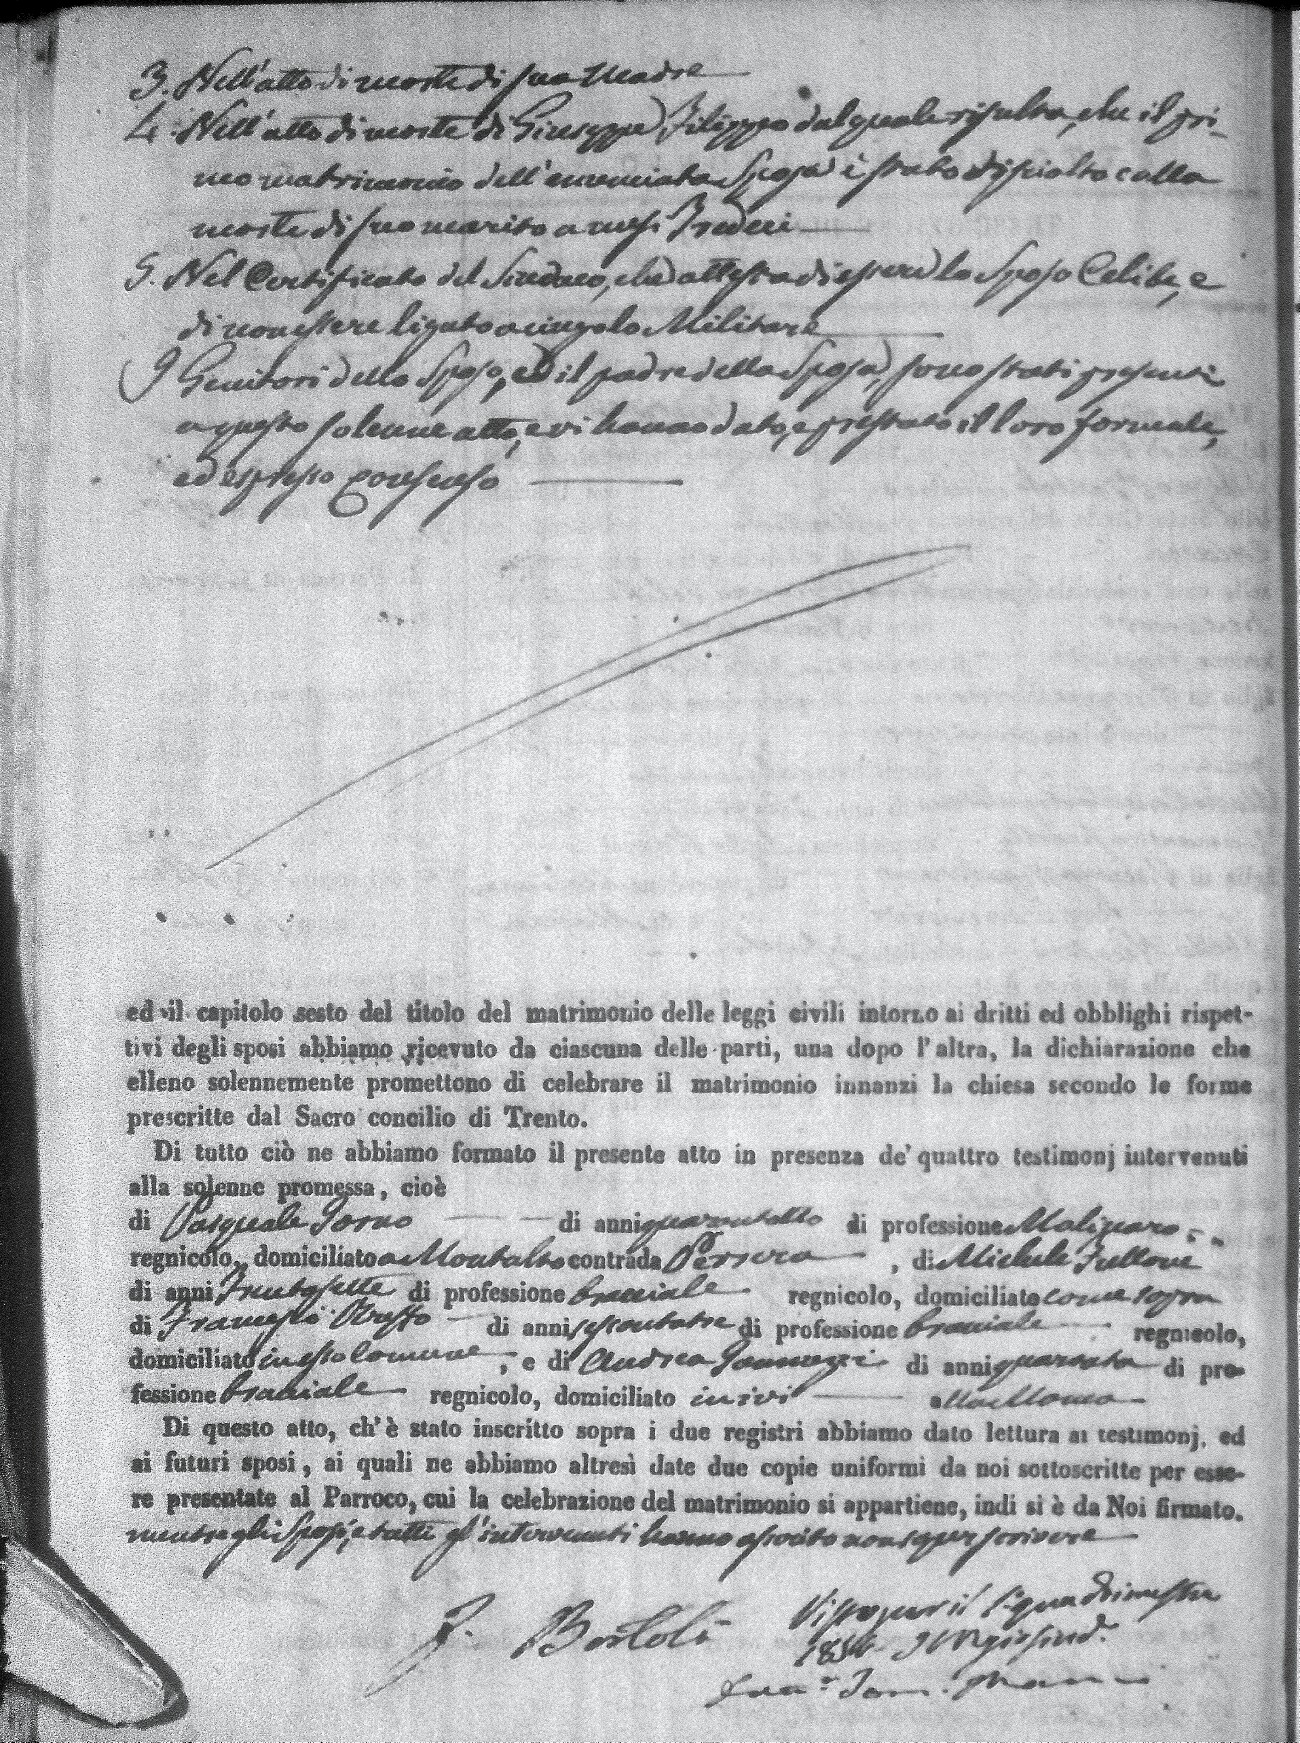 3. Nell'atto di morte di sua Madre
4. Nell'atto di morte di Giuseppe Filippo dal quale risulta, che il pri-
mo matrimonio dell'enunciata Sposa è stato disciolto colla
morte di suo marito a mesi
5. Nel Certificato del Sindaco, che attesta di essere lo Sposo Celibe, e
di non essere ligato a cingolo Militare
I Genitori dello Sposo, ed il padre della Sposa, sono stati presenti
a questo solenne atto, e vi hanno dato, e prestato il loro formale,
ed espresso consenso
ed il capitolo sesto del titolo del matrimonio delle leggi civili intorno ai dritti ed obblighi rispet-
tivi degli sposi abbiamo ricevuto da ciascuna delle parti, una dopo l'altra, la dichiarazione che
elleno solennemente promettono di celebrare il matrimonio innanzi la chiesa secondo le forme
prescritte dal Sacro concilio di Trento.
Di tutto ciò ne abbiamo formato il presente atto in presenza de' quattro testimonj intervenuti
alla solenne promessa, cioè
di Pasquale di anni quarantotto di professione
regnicolo, domiciliato a Montalto contrada , di Michele
di anni trentasette di professione bracciale regnicolo, domiciliato come sopra
di di anni sessantatre di professione bracciale regnicolo,
domiciliato in esso Comune, e di Andrea Iannuzzi di anni quaranta di pro-
fessione bracciale regnicolo, domiciliato in ivi
Di questo atto, ch'è stato inscritto sopra i due registri abbiamo dato lettura ai testimonj, ed
ai futuri sposi, ai quali ne abbiamo altresì date due copie uniformi da noi sottoscritte per esse-
re presentate al Parroco, cui la celebrazione del matrimonio si appartiene, indi si è da Noi firmato.
mentre gli Sposi, e tutti gl'intervenuti hanno asserito non saper scrivere
F. Bertoli
Visto per il 1° quadrimestre